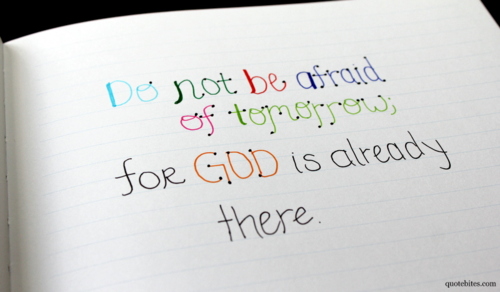 Do not be afraid
of tomorrow;
for GOD is already
there.
quotebites.com